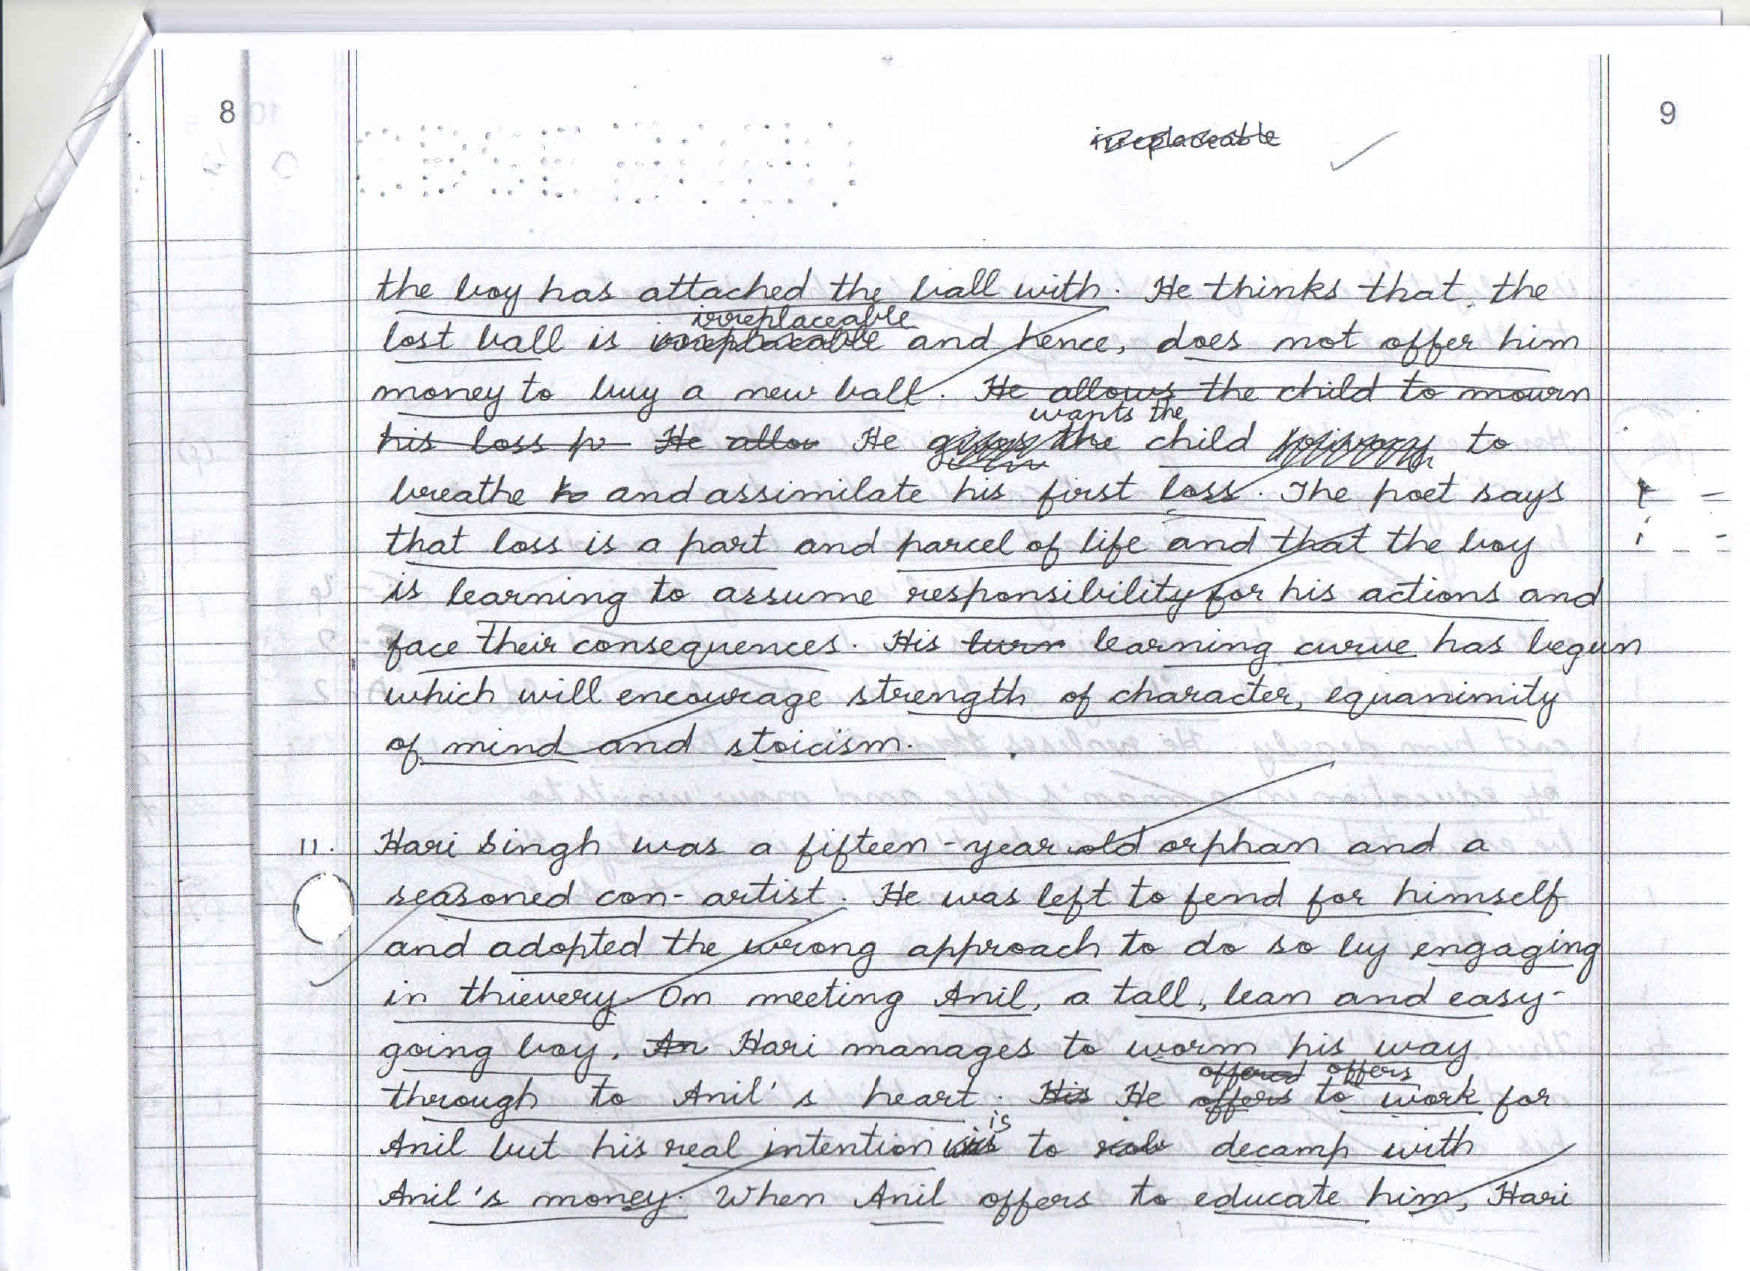 8
9
irreplaceable
the boy has attached the ball with. He thinks that the
irreplaceable
lost ball is irreplaceable and hence, does not offer him
money to buy a new ball. He allows the child to mourn
wants the
his loss He allow He the child to
breathe to and assimilate his first loss. The poet says
that loss is a part and parcel of life and that the boy
is learning to assume responsibility for his actions and
face their consequences. His learning curve has begun
which will encourage strength of character, equanimity
of mind and stoicism.
11. Hari Singh was a fifteen-year old orphan and a
seasoned con-artist. He was left to fend for himself
and adopted the wrong approach to do so by engaging
in thievery. On meeting Anil, a tall, lean and easy-
going boy, An Hari manages to worm his way
offered offers
through to Anil's heart. His He offers to work for
is
Anil but his real intention to rob decamp with
Anil's money. When Anil offers to educate him, Hari